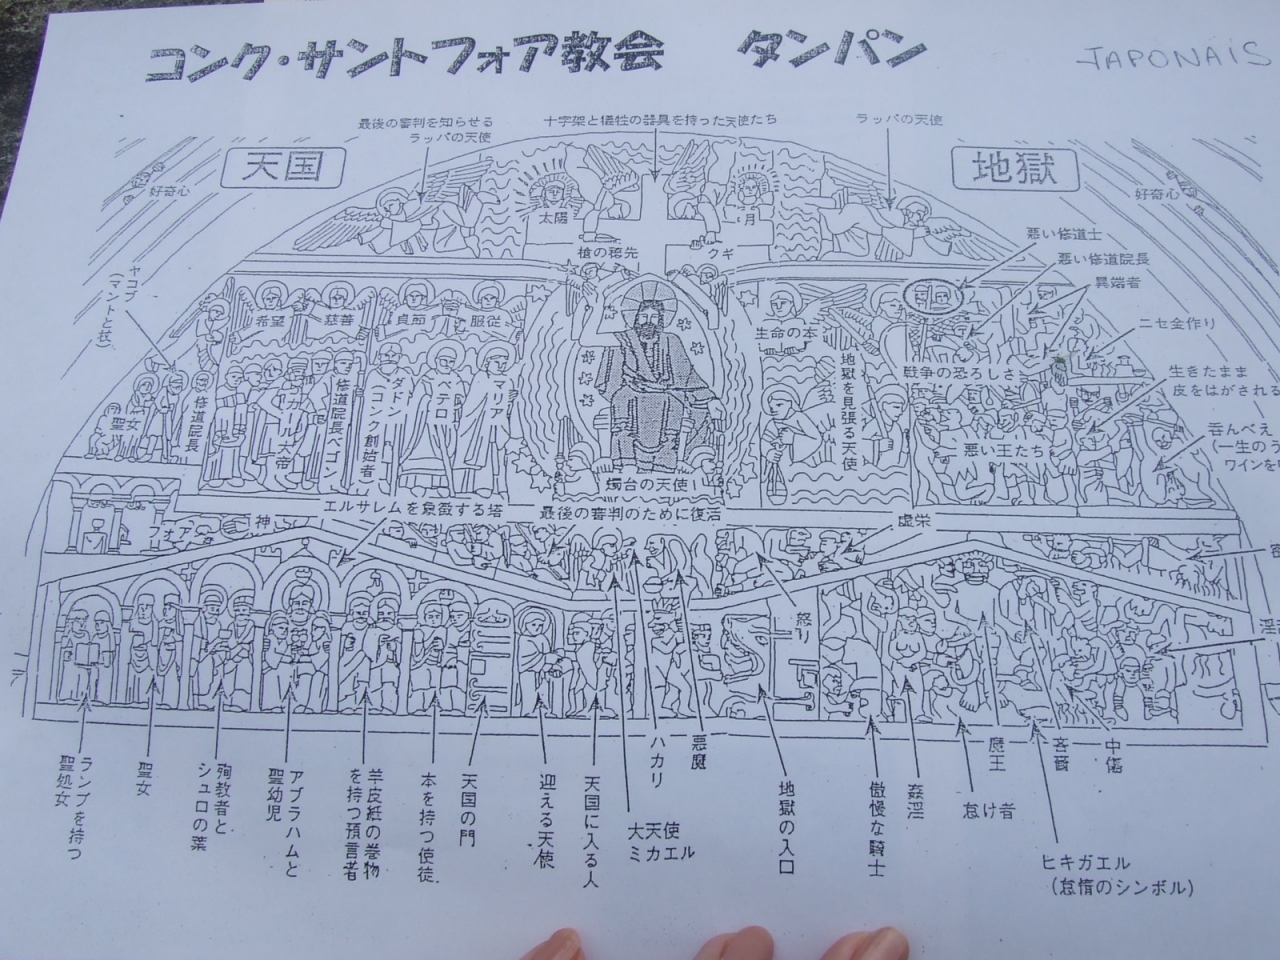 コンク・サントフォア教会 タンパン
JAPONAIS
最後の審判を知らせる
ラッパの天使
十字架と犠牲の器具を持った天使たち
ラッパの天使
天国
地獄
好奇心
好奇心
太陽
月
槍の穂先
クギ
悪い修道士
悪い修道院長
異端者
ニセ金作り
生きたまま
皮をはがされる
呑んべえ
(一生のう
ワインを
ヤコブ
(マントと杖)
希望
慈善
貞節
服従
生命の本
戦争の恐ろしさ
地獄を見張る天使
悪い王たち
聖女
修道院長
カール大帝
修道院長ベゴン
ダドン
(コンク創始者)
ペテロ
マリア
燭台の天使
エルサレムを象徴する塔
最後の審判のために復活
虚栄
フォア
神
怒り
ランプを持つ
聖処女
聖女
殉教者と
シュロの葉
アブラハムと
聖幼児
羊皮紙の巻物
を持つ預言者
本を持つ使徒
天国の門
迎える天使
天国に入る人
大天使
ミカエル
ハカリ
悪魔
地獄の入口
傲慢な騎士
姦淫
怠け者
魔王
吝嗇
中傷
ヒキガエル
(怠惰のシンボル)